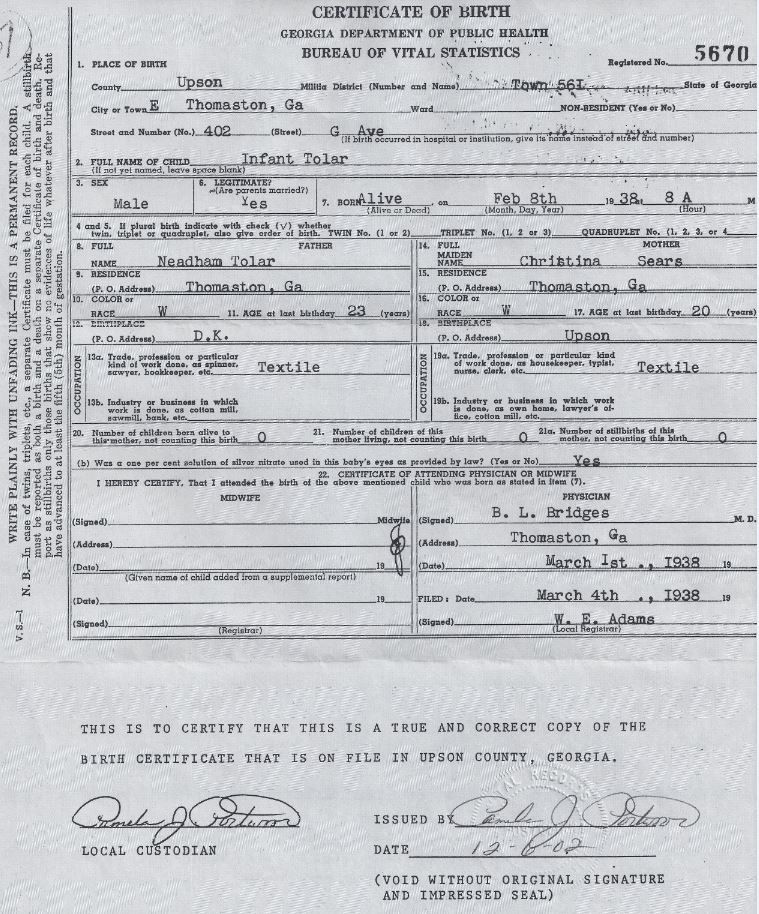 CERTIFICATE OF BIRTH
GEORGIA DEPARTMENT OF PUBLIC HEALTH
BUREAU OF VITAL STATISTICS
Registered No. 5670
1. PLACE OF BIRTH
County Upson Militia District (Number and Name) Town 561 State of Georgia
City or Town E Thomaston, Ga Ward NON-RESIDENT (Yes or No)
Street and Number (No.) 402 (Street) G Ave
(If birth occurred in hospital or institution, give its name instead of street and number)
2. FULL NAME OF CHILD Infant Tolar
(If not yet named, leave space blank)
3. SEX Male
6. LEGITIMATE?
(Are parents married?) Yes
7. BORN Alive on Feb 8th 1938, at 8 A M
(Alive or Dead) (Month, Day, Year) (Hour)
4 and 5. If plural birth indicate with check (√) whether
twin, triplet or quadruplet, also give order of birth. TWIN No. (1 or 2) TRIPLET No. (1, 2 or 3) QUADRUPLET No. (1, 2, 3, or 4
8. FULL FATHER
NAME Needham Tolar
9. RESIDENCE
(P. O. Address) Thomaston, Ga
10. COLOR or
RACE W 11. AGE at last birthday 23 (years)
12. BIRTHPLACE
(P. O. Address) D.K.
OCCUPATION
13a. Trade, profession or particular
kind of work done, as spinner,
sawyer, bookkeeper, etc. Textile
13b. Industry or business in which
work is done, as cotton mill,
sawmill, bank, etc.
14. FULL MOTHER
MAIDEN
NAME Christina Sears
15. RESIDENCE
(P. O. Address) Thomaston, Ga
16. COLOR or
RACE W 17. AGE at last birthday 20 (years)
18. BIRTHPLACE
(P. O. Address) Upson
OCCUPATION
19a. Trade, profession or particular kind
of work done, as housekeeper, typist,
nurse, clerk, etc. Textile
19b. Industry or business in which work
is done, as own home, lawyer's of-
fice, cotton mill, etc.
20. Number of children born alive to
this mother, not counting this birth 0
21. Number of children of this
mother living, not counting this birth 0
21a. Number of stillbirths of this
mother, not counting this birth 0
(b) Was a one per cent solution of silver nitrate used in this baby's eyes as provided by law? (Yes or No) Yes
22. CERTIFICATE OF ATTENDING PHYSICIAN OR MIDWIFE
I HEREBY CERTIFY, That I attended the birth of the above mentioned child who was born as stated in item (7).
MIDWIFE
(Signed) Midwife
(Address)
(Date) 19
(Given name of child added from a supplemental report)
(Date) 19
(Signed)
(Registrar)
PHYSICIAN
(Signed) B. L. Bridges M. D.
(Address) Thomaston, Ga
(Date) March 1st ., 1938 19
FILED: Date March 4th ., 1938 19
(Signed) W. E. Adams
(Local Registrar)
V. S.—1
WRITE PLAINLY WITH UNFADING INK—THIS IS A PERMANENT RECORD.
N. B.—In case of twins, triplets, etc., a separate Certificate must be filed for each child. A stillbirth
must be reported as both a birth and a death on a separate Certificate of birth and death. Re-
port as stillbirths only those births that show no evidences of life whatever after birth and that
have advanced to at least the fifth (5th) month of gestation.
THIS IS TO CERTIFY THAT THIS IS A TRUE AND CORRECT COPY OF THE
BIRTH CERTIFICATE THAT IS ON FILE IN UPSON COUNTY, GEORGIA.
Pamela J Portwood
LOCAL CUSTODIAN
ISSUED BY Pamela J. Portwood
DATE 12-6-02
(VOID WITHOUT ORIGINAL SIGNATURE
AND IMPRESSED SEAL)